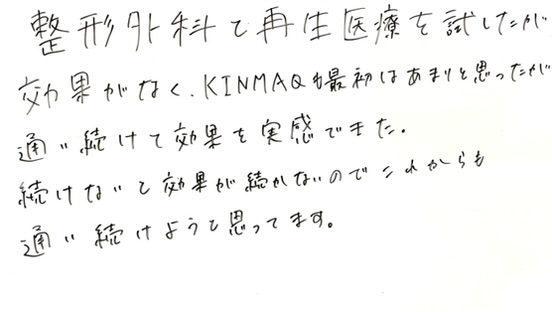 整形外科で再生医療を試したが
効果がなく、KINMAQも最初はあまりと思ったが
通い続けて効果を実感できた。
続けないと効果が続かないのでこれからも
通い続けようと思ってます。